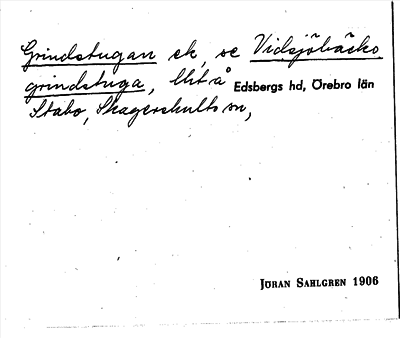 Grindstugan ek, se Vidsjöbäcks
grindstuga, Utt. å Edsbergs hd, Örebro län
Stabo, Skagershults sn,
JÖRAN SAHLGREN 1906